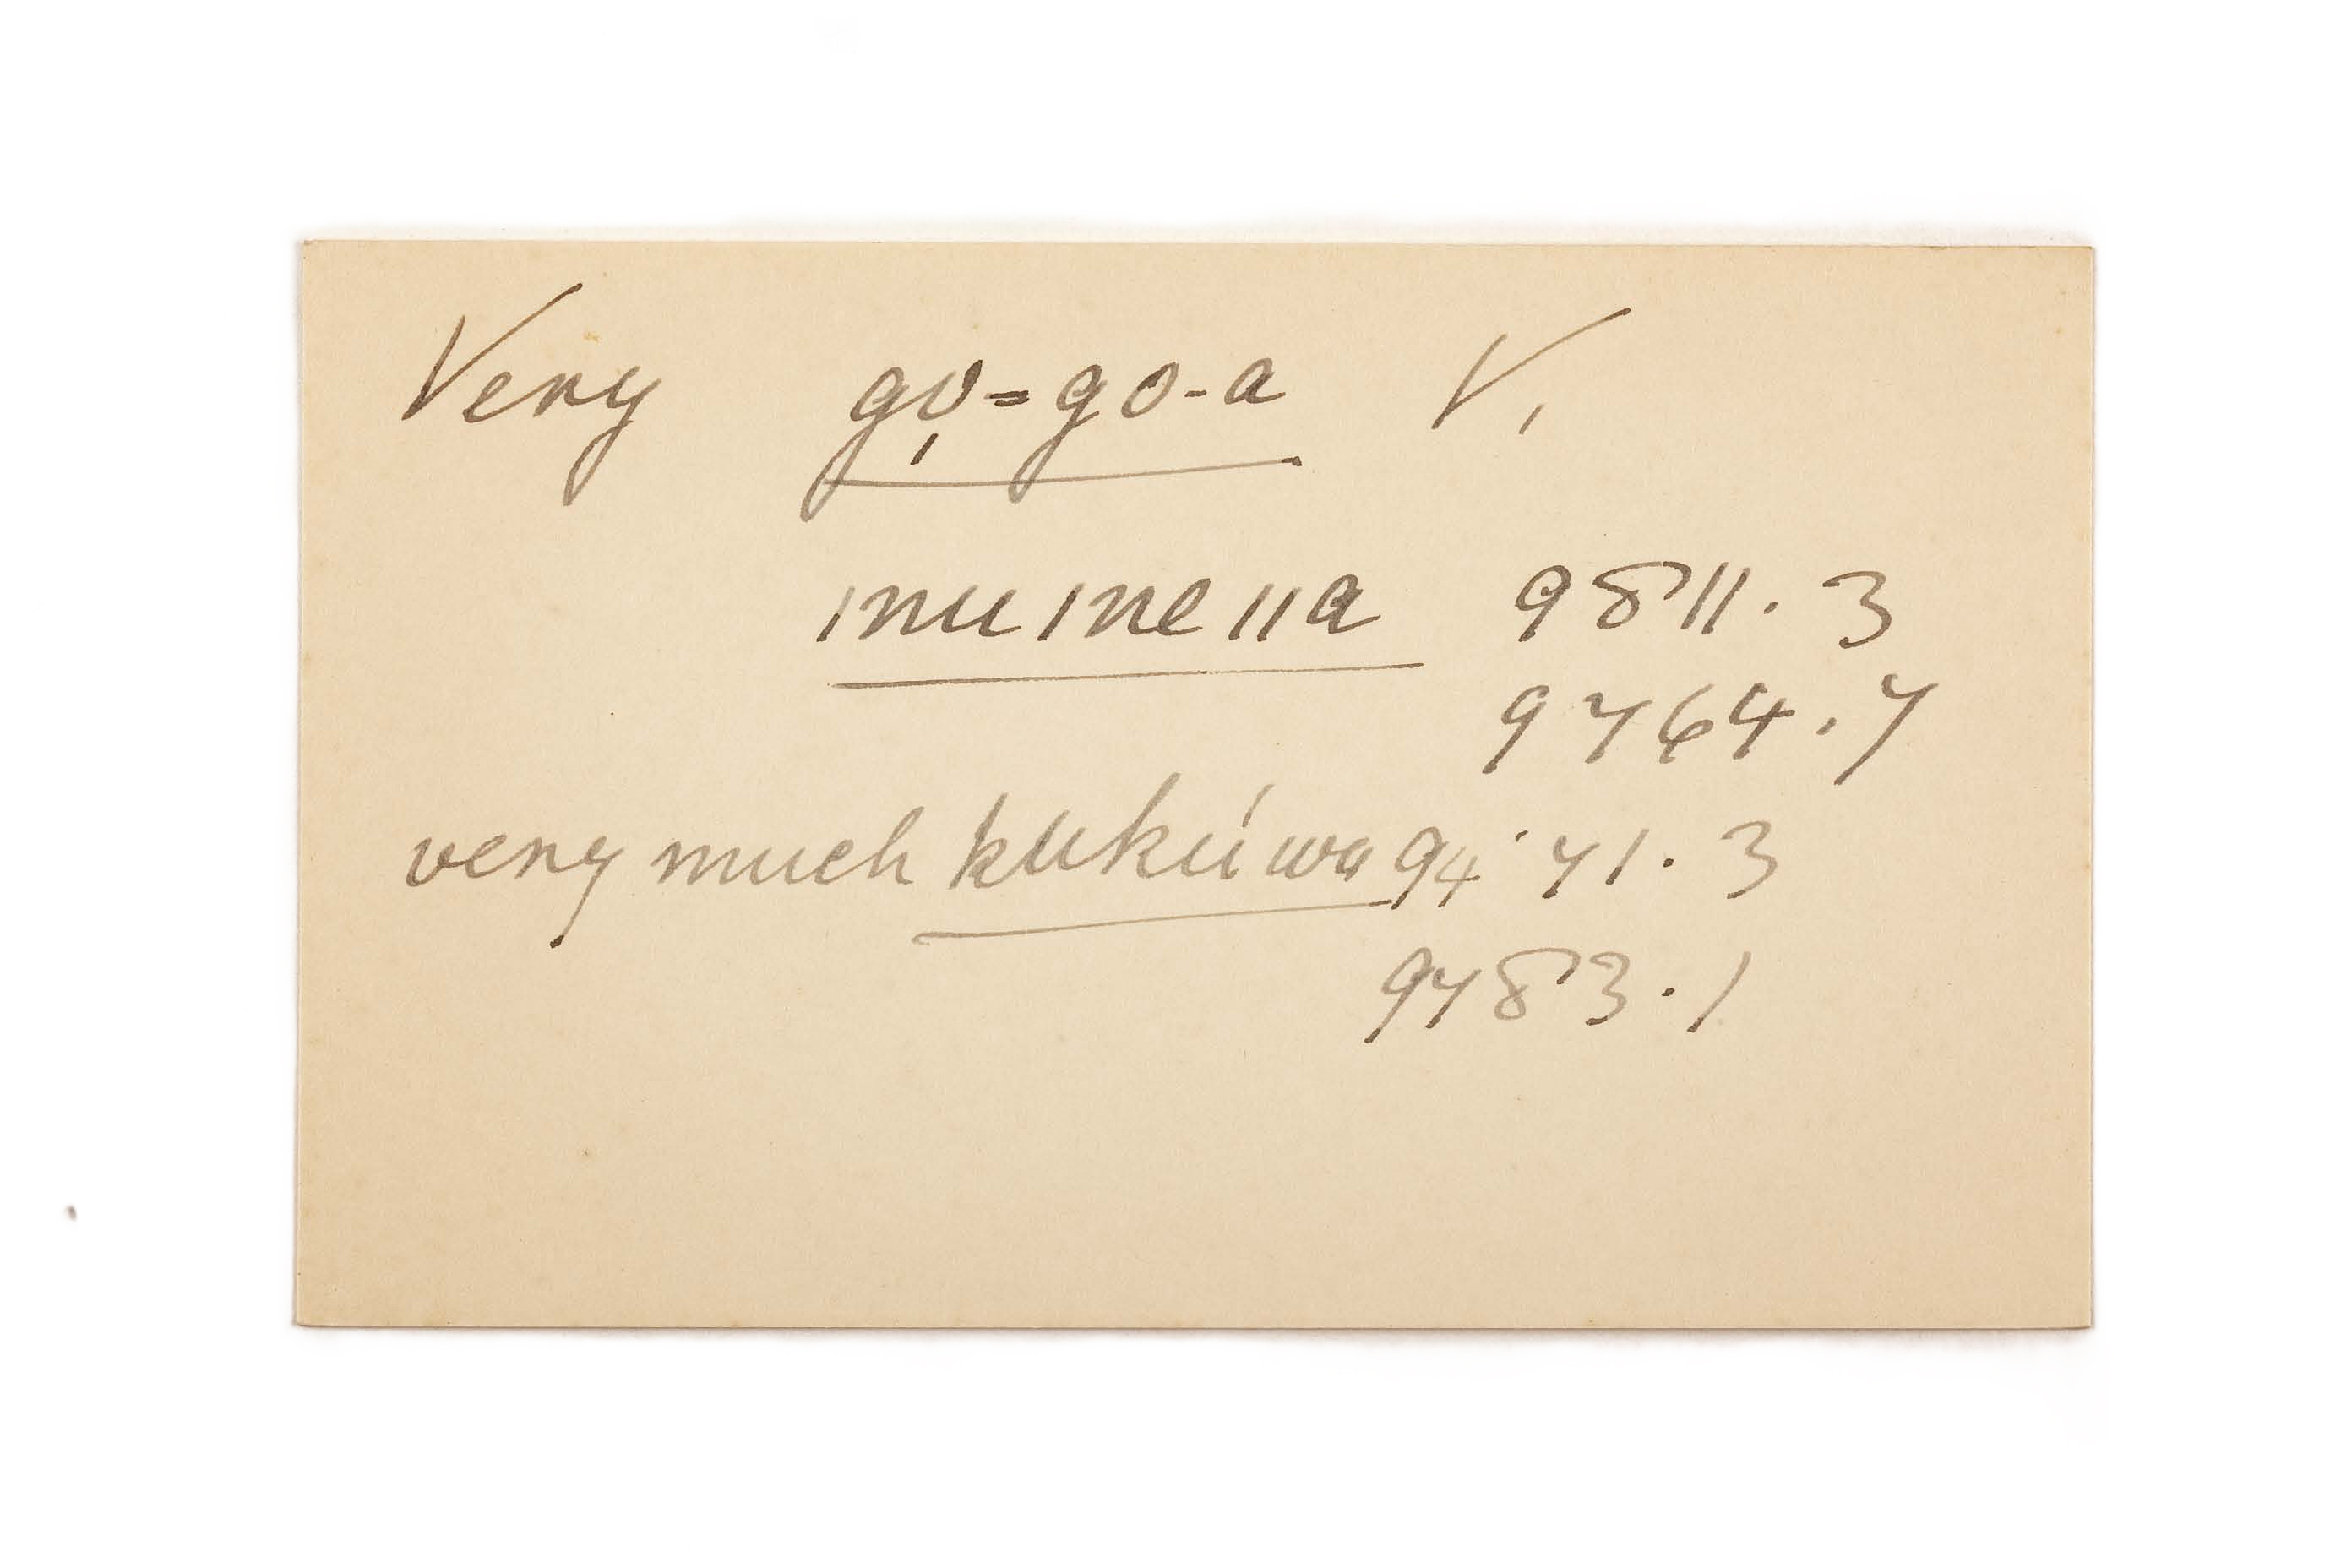 Very gọ=go-a V,
ınuıneııa 9811.3
9764.7
very much kukúwa 9471.3
9783.1